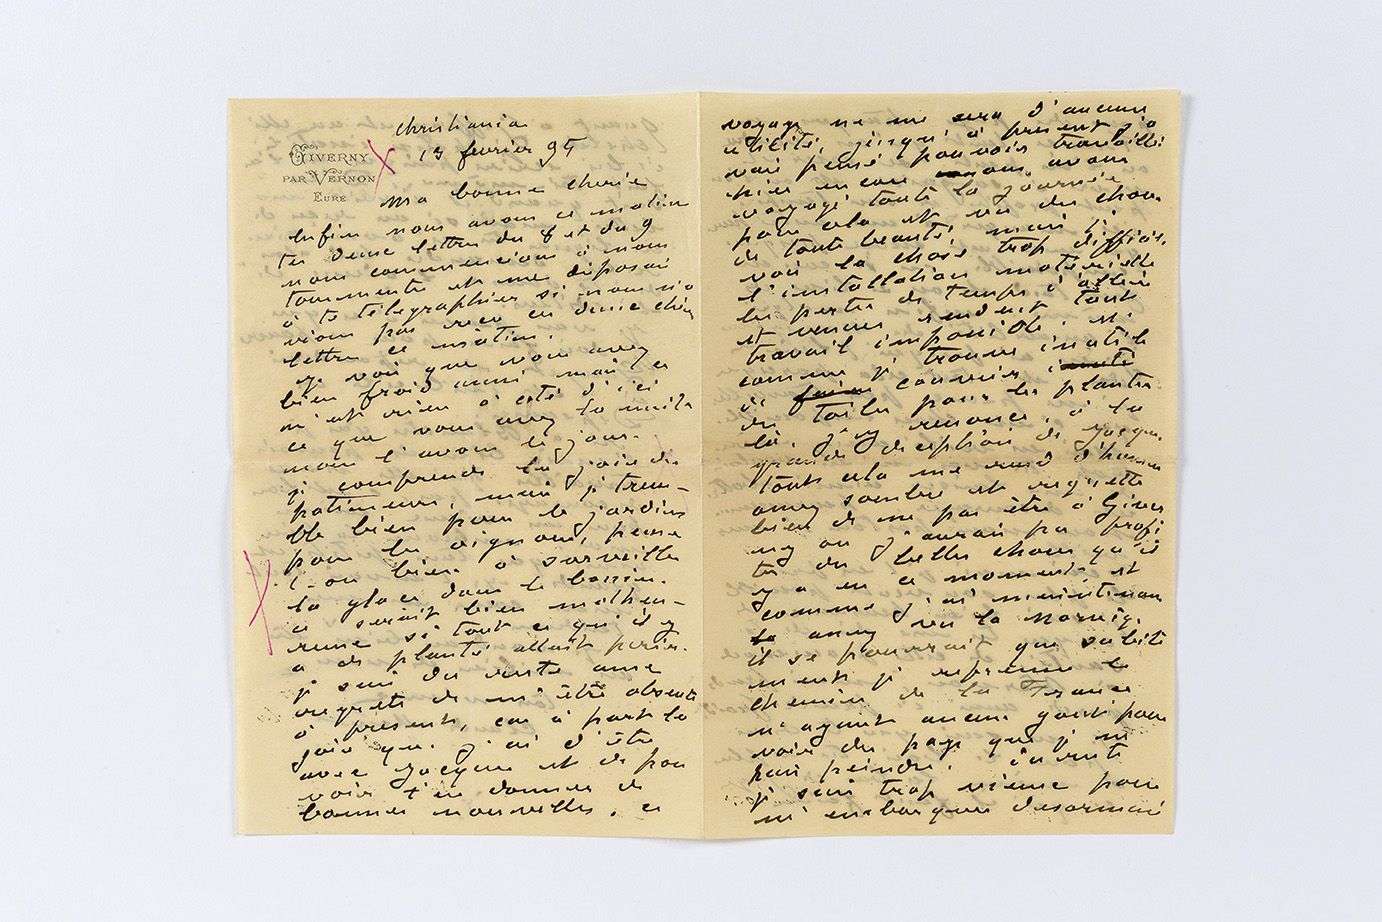 Christiania
13 fevrier 95
GIVERNY
PAR VERNON
EURE
Ma bonne cherie
Enfin nous avons ce matin
tes deux lettres du 8 et du 9
nous commencions à nous
tourmenter et me disposais
à te télégraphier si nous n'a
vions pas reçu ces deux chère
lettre ce matin.
Je vois que vous avez
bien froid aussi mais ce
n'est rien à côté d'ici
ce que vous avez la nuit
nous l'avons le jour.
je comprends la joie des
patineurs, mais je trem-
ble bien pour le jardin
pour les oignons, pense
t-on bien à surveiller
la glace dans le bassin.
ce serait bien malheu-
reux si tout ce qu'il y
a de planté allait périr.
je suis du reste assez
regrets de m'être absenté
à présent, car à part la
joie que j'ai d'être
avec Jacques et de pou
voir t'en donner de
bonnes nouvelles, ce
voyage ne me sera d'aucune
utilité, jusqu'à présent j'a
vais pensé pouvoir travailler
hier encore nous avons
voyagé toute la journée
pour cela et vu des choses
de toute beauté, mais je
vois la chose trop difficile.
l'installation matérielle
les pertes de temps d'aller
et venues rendent tout
travail impossible, et
comme je trouve inutile
de couvrir
des toiles pour les planter
là, j'y renonce, à la
grande déception de Jacques.
tout cela me rend d'humeur
assez sombre et regrette
bien de ne pas être à Giver
ny où j'aurais pu profi
ter des belles choses qu'il
y a en ce moment, et
comme j'ai maintenant
assez vu la Norvège,
il se pourrait que subite
ment je reprenne le
chemin de la France
n'ayant aucun goût pour
voir du pays que je ne
puis peindre.
je suis trop vieux pour
m'embarquer désormais